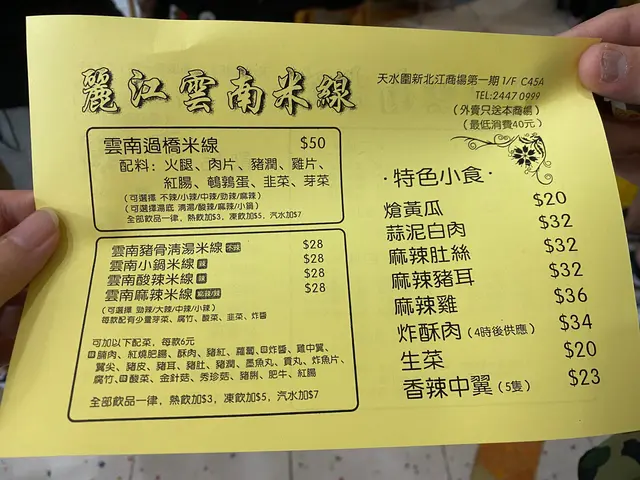 麗江雲南米線
天水圍新北江商場第一期 1/F C45A
TEL:2447 0999
(外賣只送本商場)
(最低消費40元)
雲南過橋米線 $50
配料：火腿、肉片、豬潤、雞片、
紅腸、鵪鶉蛋、韭菜、芽菜
(可選擇 不辣/小辣/中辣/勁辣/麻辣)
(可選擇湯底 清湯/酸辣/麻辣/小鍋)
全部飲品一律，熱飲加$3，凍飲加$5，汽水加$7
雲南豬骨清湯米線 不辣 $28
雲南小鍋米線 辣 $28
雲南酸辣米線 辣 $28
雲南麻辣米線 $28
(可選擇 勁辣/大辣/中辣/小辣)
每款配有少量芽菜、腐竹、酸菜、韭菜、炸醬
可加以下配菜，每款6元
腩肉、紅燒肥腸、酥肉、豬紅、蘿蔔、炸醬、雞中翼、
翼尖、豬皮、豬耳、豬肚、豬潤、墨魚丸、貢丸、炸魚片、
腐竹、酸菜、金針菇、秀珍菇、豬脷、肥牛、紅腸
全部飲品一律，熱飲加$3，凍飲加$5，汽水加$7
·特色小食·
熗黃瓜 $20
蒜泥白肉 $32
麻辣肚絲 $32
麻辣豬耳 $32
麻辣雞 $36
炸酥肉 (4時後供應) $34
生菜 $20
香辣中翼 (5隻) $23